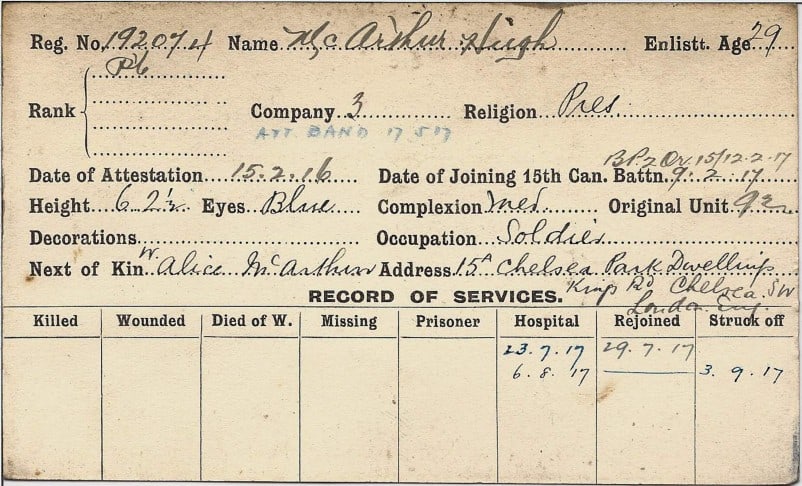 Reg. No. 192074 Name Mc Arthur Hugh Enlistt. Age 29
Rank Pte Company 3 Religion Pres
ATT. BAND 17 5 17
BP 2 Or. 15/12-2-17
Date of Attestation 15.2.16 Date of Joining 15th Can. Battn. 9.2.17
Height 6 2½ Eyes Blue Complexion Med. Original Unit 92
Decorations Occupation Soldier
Next of Kin W Alice McArthur Address 15A Chelsea Park Dwellings
Kings Rd Chelsea SW
London Eng.
RECORD OF SERVICES.
Killed Wounded Died of W. Missing Prisoner Hospital Rejoined Struck off
23.7.17 29.7.17
6.8.17 3.9.17